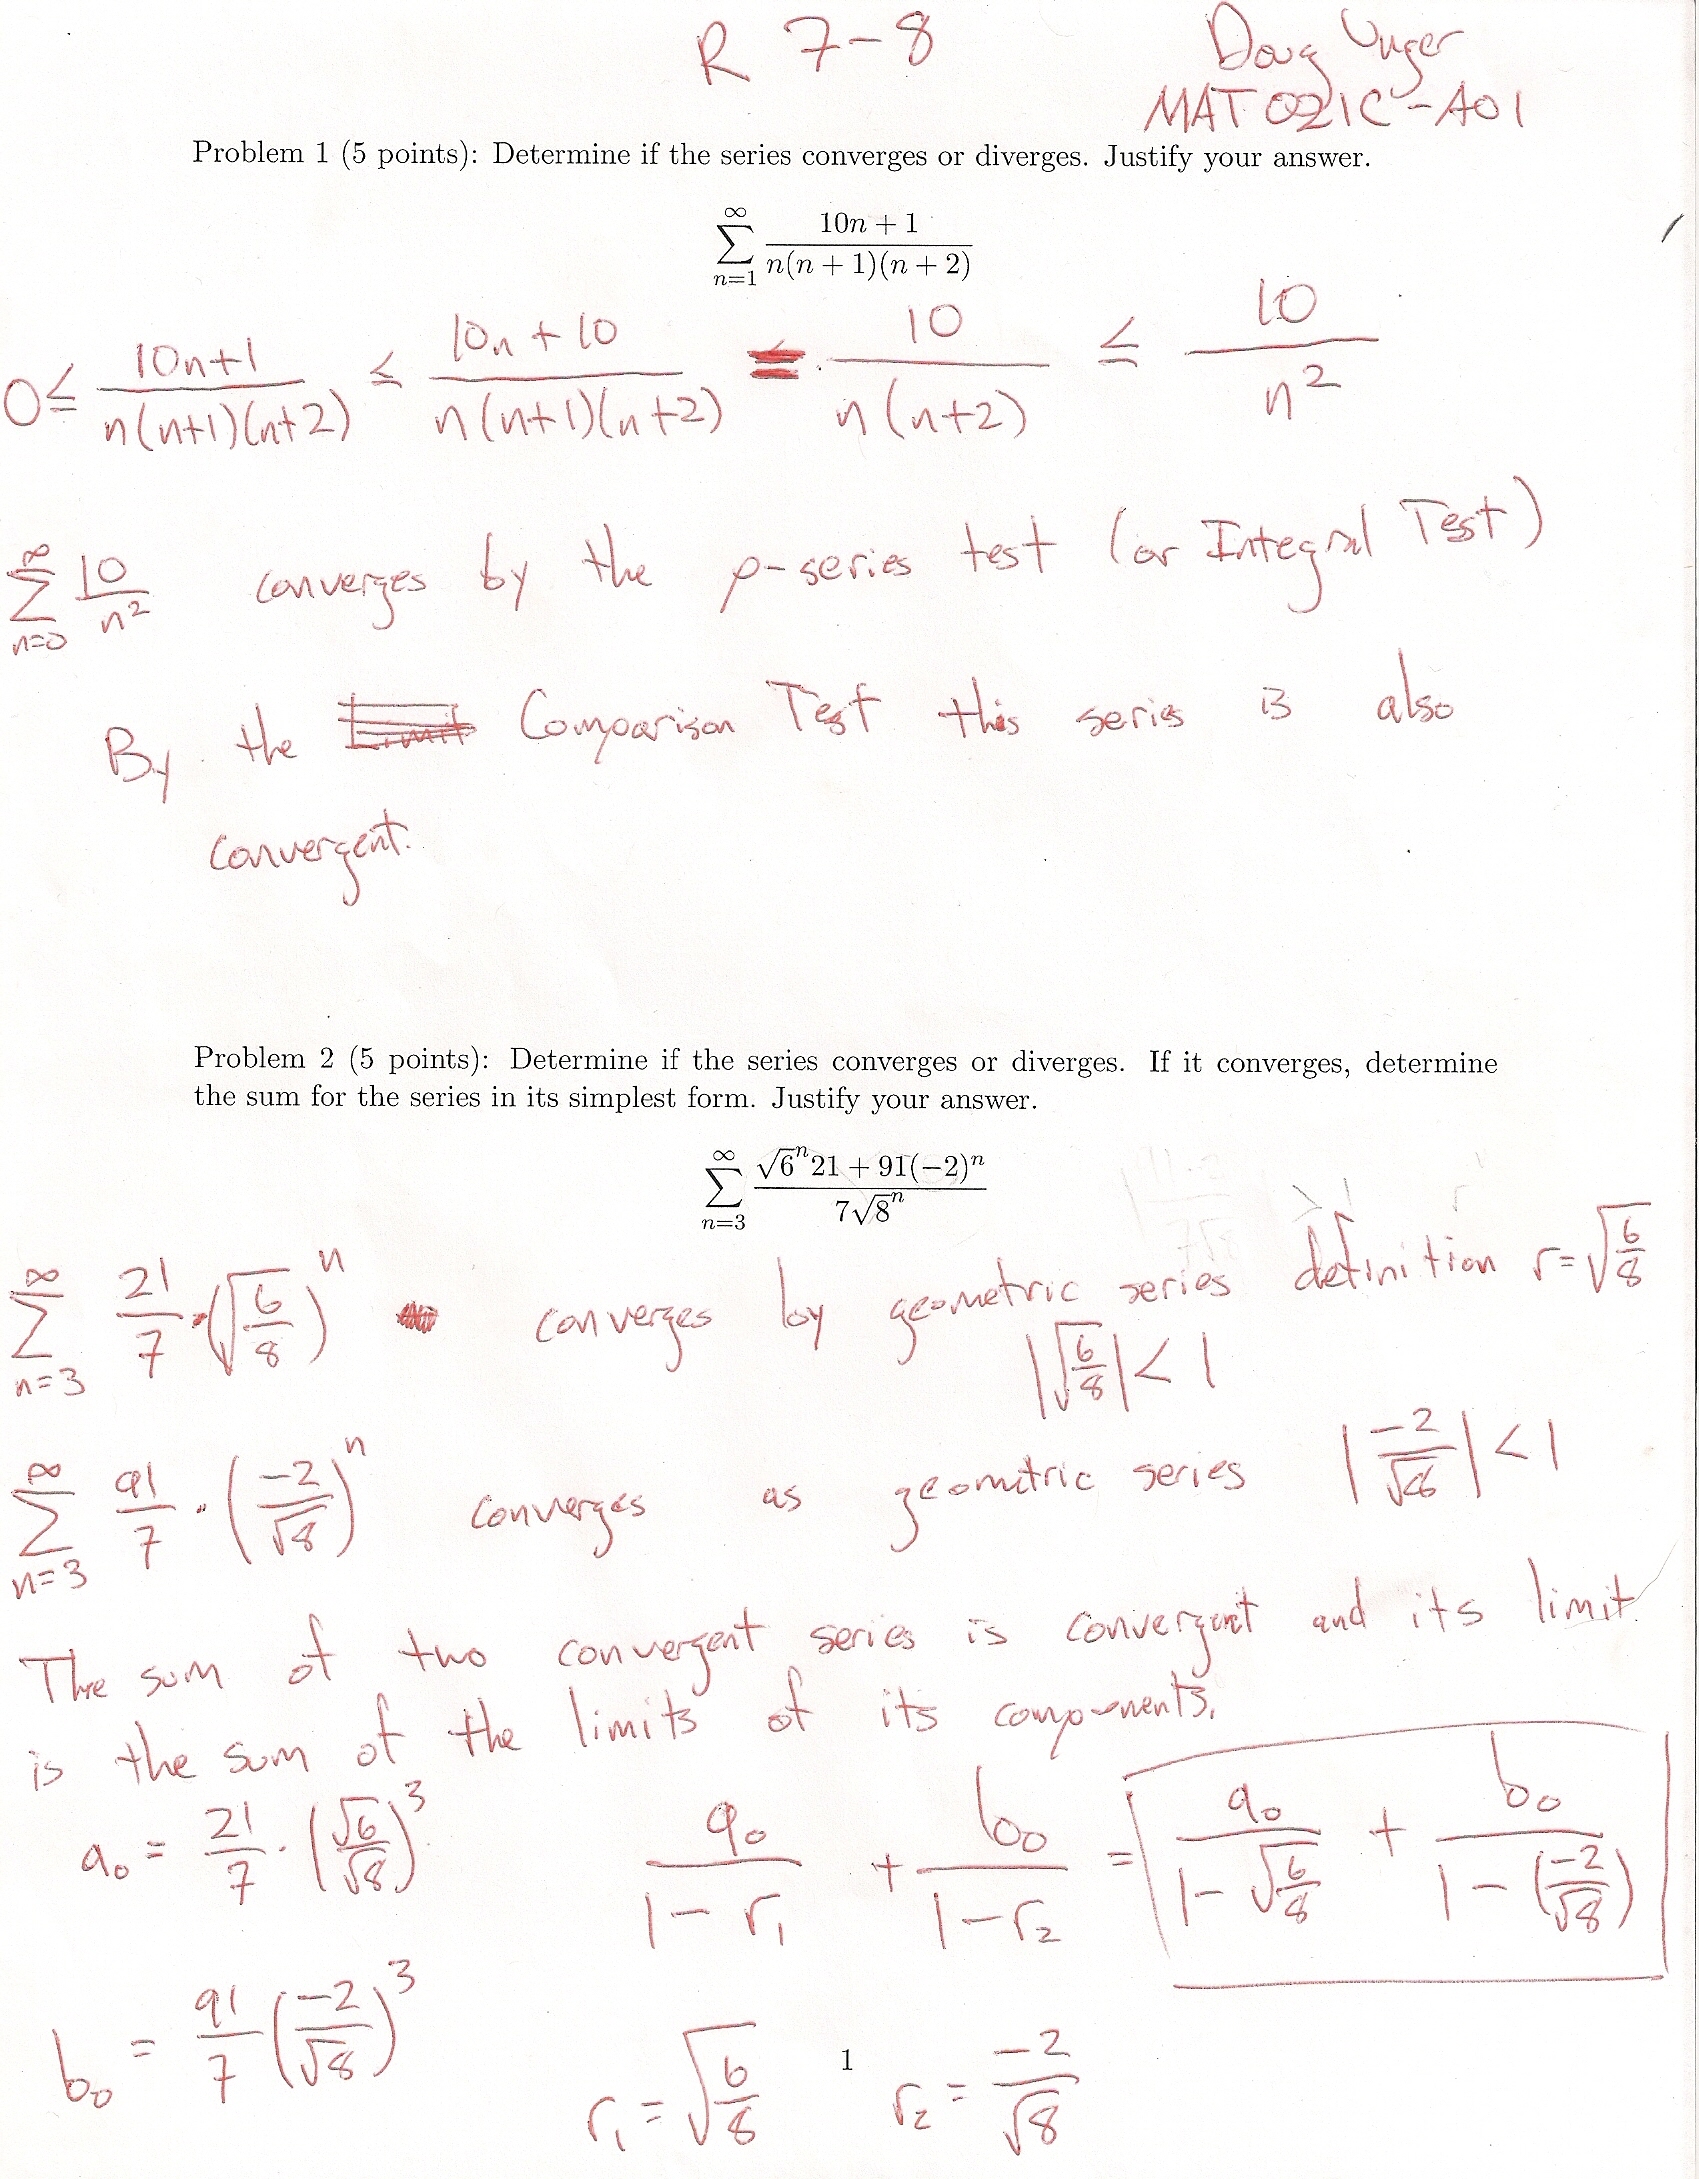 R 7-8 Doug Unger
MAT 021C-A01
Problem 1 (5 points): Determine if the series converges or diverges. Justify your answer.
∑_{n=1}^{∞} (10n + 1)/(n(n + 1)(n + 2))
0 ≤ (10n+1)/(n(n+1)(n+2)) ≤ (10n + 10)/(n(n+1)(n+2)) = 10/(n(n+2)) ≤ 10/n²
∑_{n=0}^{∞} 10/n² converges by the p-series test (or Integral Test)
By the Limit Comparison Test this series is also
convergent.
Problem 2 (5 points): Determine if the series converges or diverges. If it converges, determine
the sum for the series in its simplest form. Justify your answer.
∑_{n=3}^{∞} (√6ⁿ21 + 91(−2)ⁿ)/(7√8ⁿ)
∑_{n=3}^{∞} 21/7 · (√(6/8))ⁿ converges by geometric series definition r = √(6/8)
|√(6/8)| < 1
∑_{n=3}^{∞} 91/7 · (−2/√8)ⁿ converges as geometric series |−2/√8| < 1
The sum of two convergent series is convergent and its limit
is the sum of the limits of its components.
a₀ = 21/7 · (√6/√8)³ a₀/(1 − r₁) + b₀/(1 − r₂) = a₀/(1 − √(6/8)) + b₀/(1 − (−2/√8))
b₀ = 91/7 (−2/√8)³
r₁ = √(6/8) 1 r₂ = −2/√8